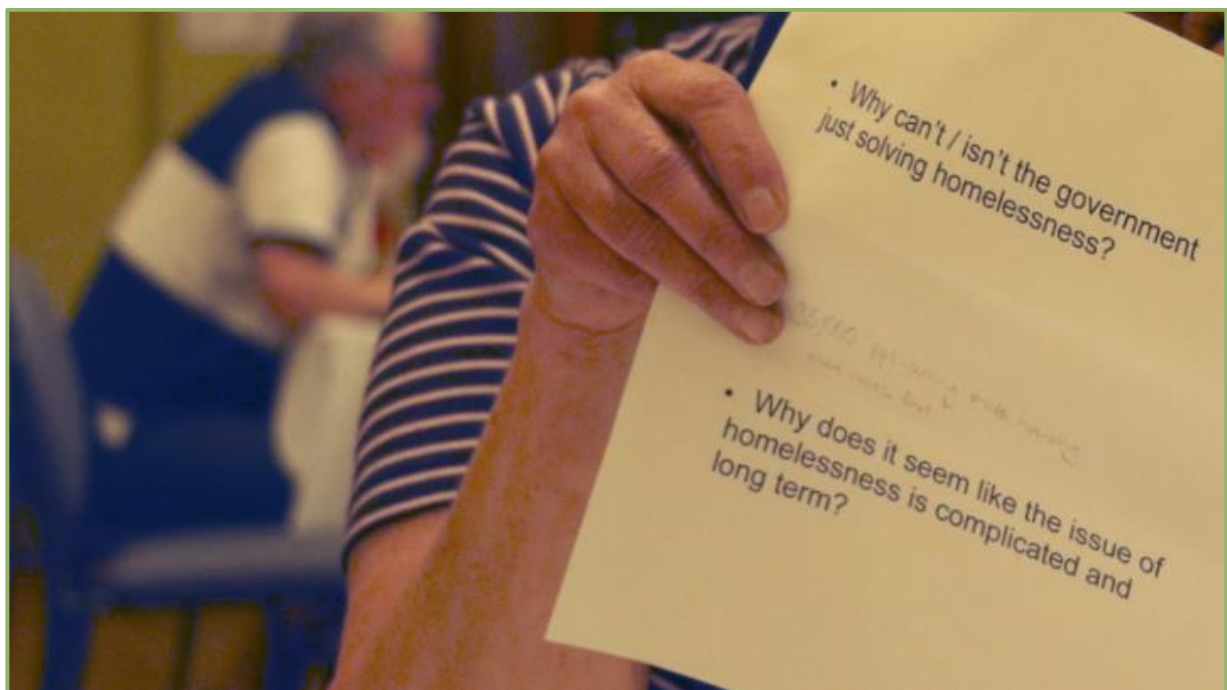 • Why can't / isn't the government
just solving homelessness?
• Why does it seem like the issue of
homelessness is complicated and
long term?